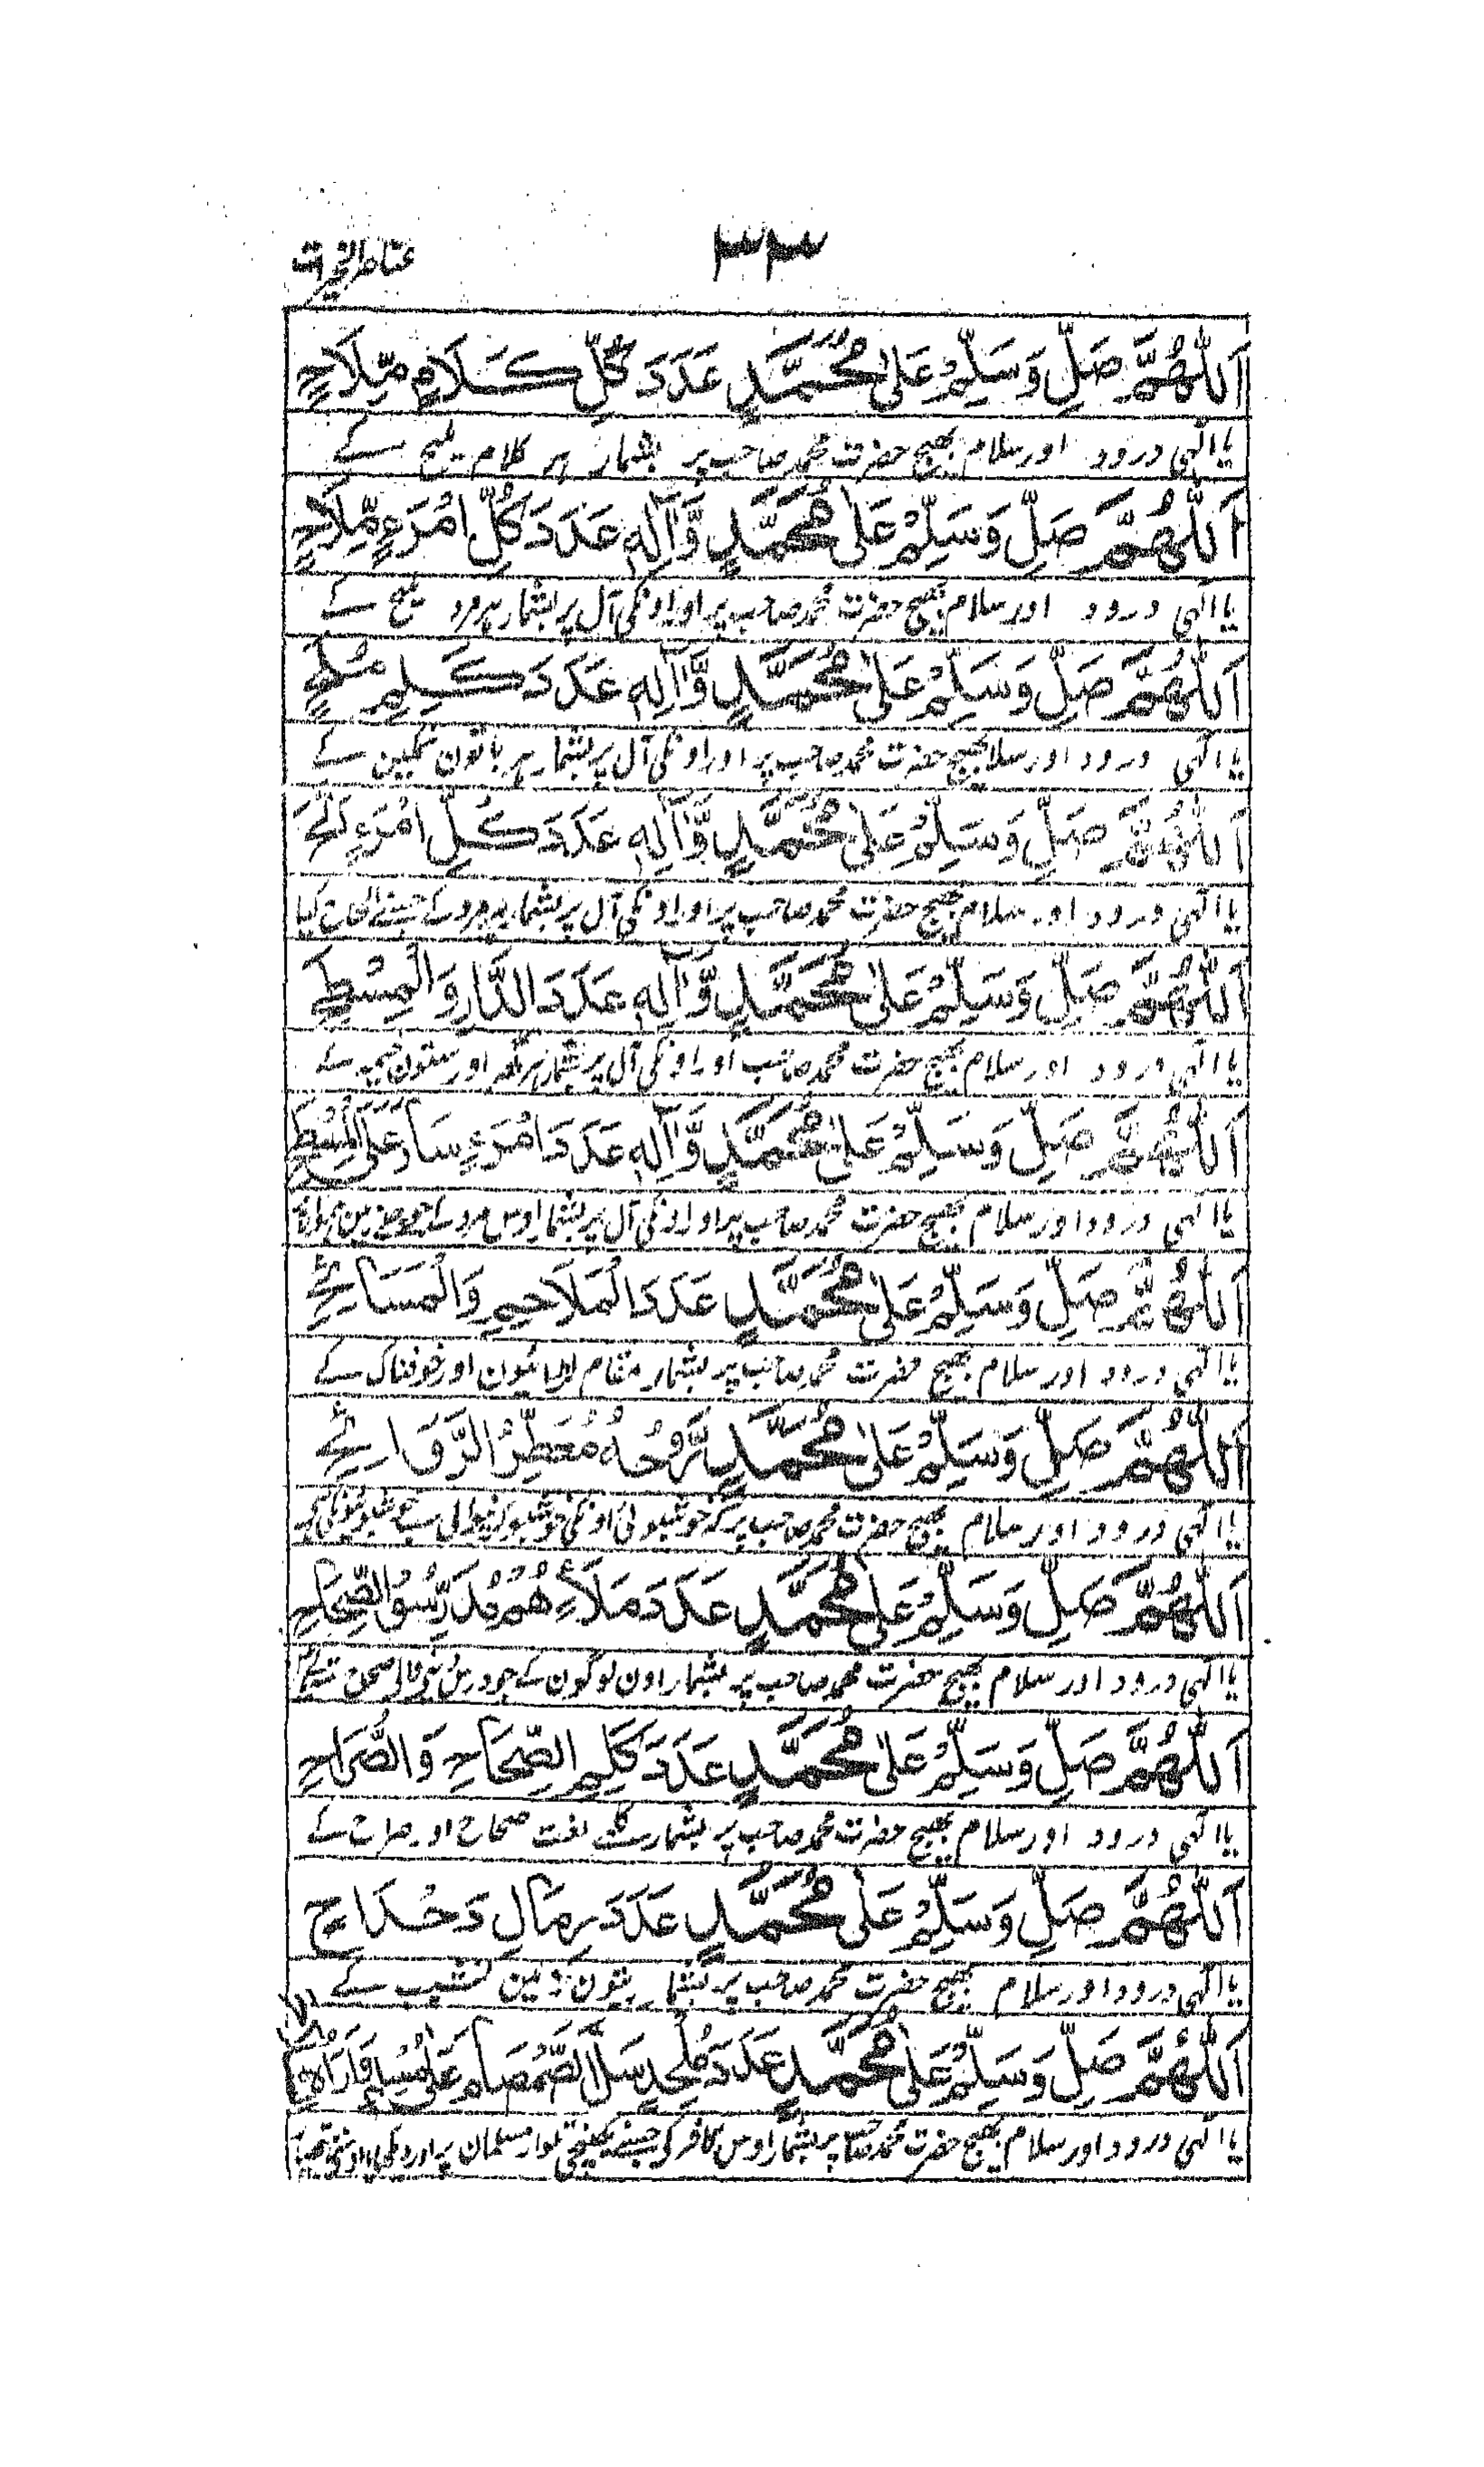 ۳۳
اَللّٰهُمَّ صَلِّ وَسَلِّمْ عَلٰى مُحَمَّدٍ عَدَدَ كُلِّ كَلَامٍ مِّلَاحٍ
یا الٰہی درود اور سلام بھیج حضرت محمد صاحب پر بشمار ہر کلام ملیح کے
اَللّٰهُمَّ صَلِّ وَسَلِّمْ عَلٰى مُحَمَّدٍ وَّاٰلِهٖ عَدَدَ كُلِّ امْرَءٍ مِّلَاحٍ
یا الٰہی درود اور سلام بھیج حضرت محمد صاحب پر اور اونکی آل پر بشمار ہر مرد ملیح کے
اَللّٰهُمَّ صَلِّ وَسَلِّمْ عَلٰى مُحَمَّدٍ وَّاٰلِهٖ عَدَدَ كَلِمٍ
یا الٰہی درود اور سلام بھیج حضرت محمد صاحب پر اور اونکی آل پر بشمار ہر باتون نمکین کے
اَللّٰهُمَّ صَلِّ وَسَلِّمْ عَلٰى مُحَمَّدٍ وَّاٰلِهٖ عَدَدَ كُلِّ امْرَءٍ
یا الٰہی درود اور سلام بھیج حضرت محمد صاحب پر اور اونکی آل پر بشمار ہر مرد کے جسنے الحاح کیا
اَللّٰهُمَّ صَلِّ وَسَلِّمْ عَلٰى مُحَمَّدٍ وَّاٰلِهٖ عَدَدَ الدَّارِ وَالْمِسْطَحِ
یا الٰہی درود اور سلام بھیج حضرت محمد صاحب اور اونکی آل پر بشمار ہر گھر اور ستون خیمہ کے
اَللّٰهُمَّ صَلِّ وَسَلِّمْ عَلٰى مُحَمَّدٍ وَّاٰلِهٖ عَدَدَ امْرَءٍ سَارَ عَلَى
یا الٰہی درود اور سلام بھیج حضرت محمد صاحب پر اور اونکی آل پر بشمار اوس مرد کے جو
اَللّٰهُمَّ صَلِّ وَسَلِّمْ عَلٰى مُحَمَّدٍ عَدَدَ الْمَلَاحِمِ وَالْمَسَائِحِ
یا الٰہی درود اور سلام بھیج حضرت محمد صاحب پر بشمار مقام لڑائیون اور خوفناک کے
اَللّٰهُمَّ صَلِّ وَسَلِّمْ عَلٰى مُحَمَّدٍ رَوْحُهٗ مُعَطِّرُ الرَّوَائِحِ
یا الٰہی درود اور سلام بھیج حضرت محمد صاحب پر کہ خوشبوئی اونکی خوشبو کرنیوالی ہے
اَللّٰهُمَّ صَلِّ وَسَلِّمْ عَلٰى مُحَمَّدٍ عَدَدَ مَلَاءٍ هُمْ مُدَرِّسُو الصِّحَاحِ
یا الٰہی درود اور سلام بھیج حضرت محمد صاحب پر بشمار اون لوگون کے جو
اَللّٰهُمَّ صَلِّ وَسَلِّمْ عَلٰى مُحَمَّدٍ عَدَدَ كَلِمِ الصِّحَاحِ وَالصُّرَاحِ
یا الٰہی درود اور سلام بھیج حضرت محمد صاحب پر بشمار کلمے لغت صحاح اور صراح کے
اَللّٰهُمَّ صَلِّ وَسَلِّمْ عَلٰى مُحَمَّدٍ عَدَدَ رِمَالِ دَحْدَاحٍ
یا الٰہی درود اور سلام بھیج حضرت محمد صاحب پر بشمار ریتون زمین نشیب کے
اَللّٰهُمَّ صَلِّ وَسَلِّمْ عَلٰى مُحَمَّدٍ عَدَدَ مُلْحِدٍ سَلَّ الصَّمْصَامَ عَلٰى مُسْلِمٍ
یا الٰہی درود اور سلام بھیج حضرت محمد صاحب پر بشمار اوس کافر کی جسنے کھینچی تلوار مسلمان پر اور